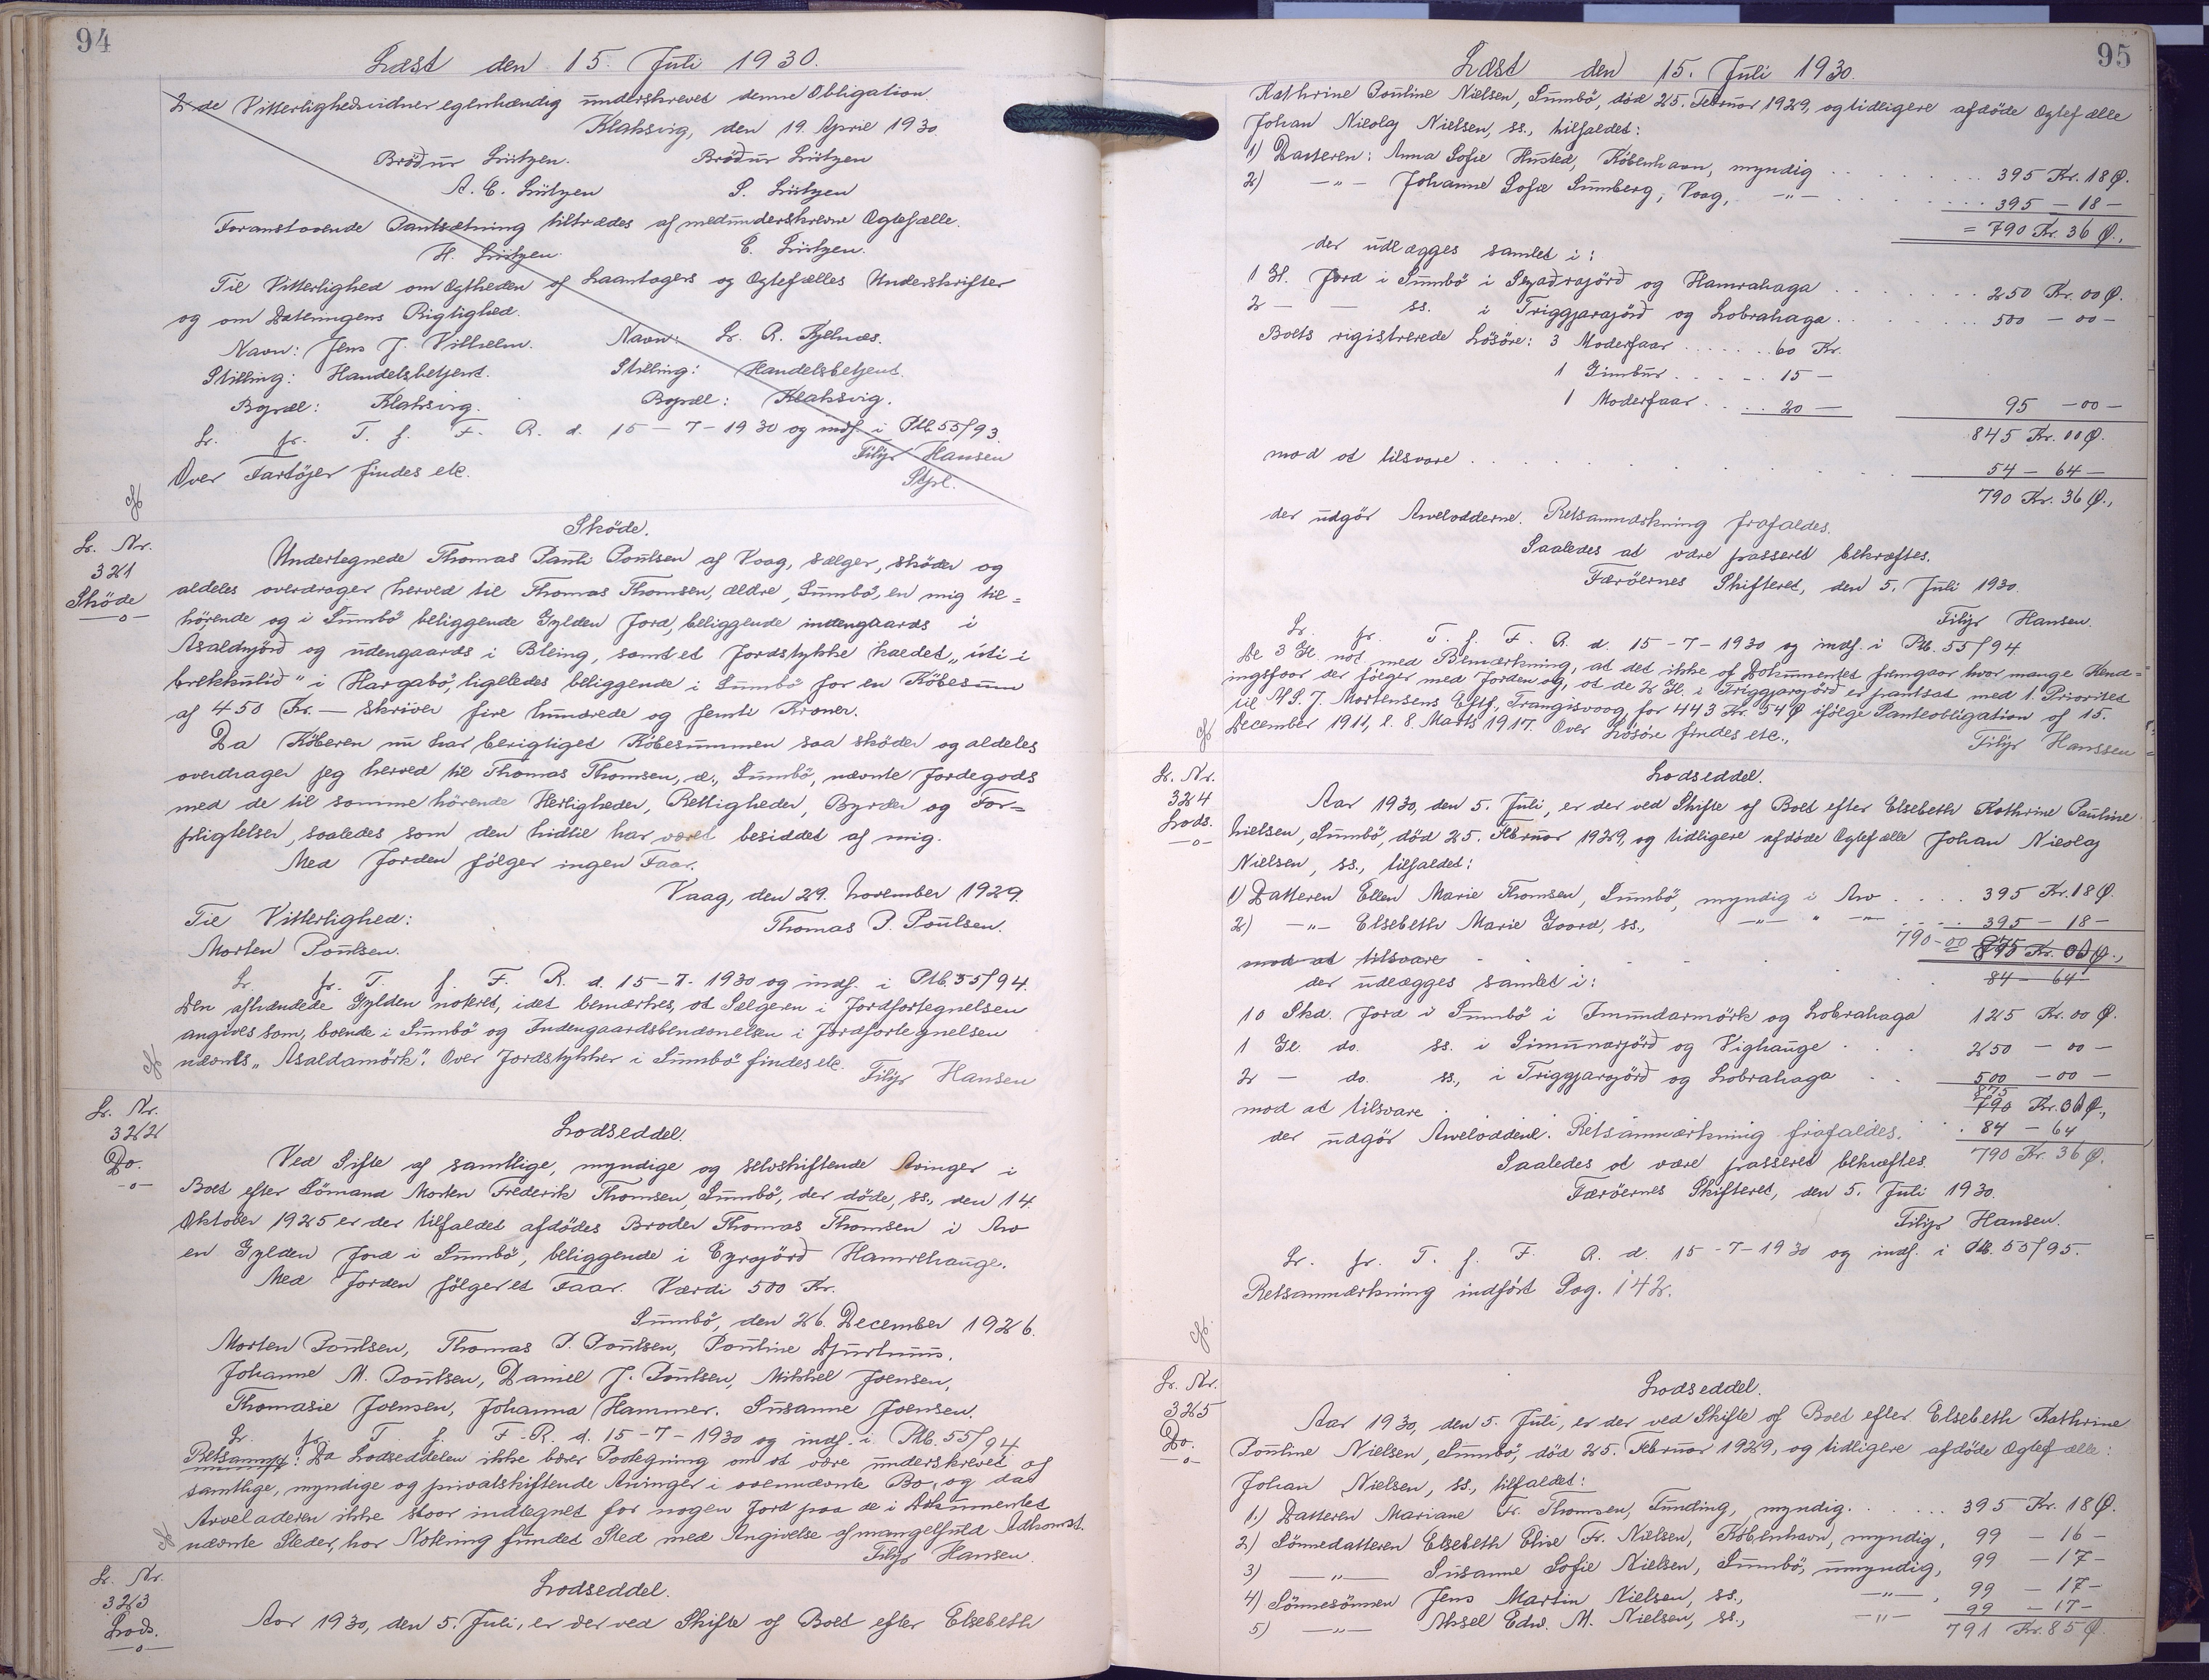 94
Læst den 15. Juli 1930.
2 de Vitterlighedsvidner egenhændig underskrevet denne Obligation
Klaksvig, den 19. April 1930.
Bröður Lützen. Bröður Lützen
A. C. Lützen S. Lützen
Foranstaaende Pantsætning tiltrædes af medunderskrevne Ægtefælle.
H. Lützen. C. Lützen.
Til Vitterlighed om Ægtheden af Laantagers og Ægtefælles Underskrifter
og om Dateringens Rigtighed.
Navn: Jens J. Vilhelm. Navn: Sr. R. Kjelnæs.
Stilling: Handelsbetjent. Stilling: Handelsbetjent.
Bopæl: Klaksvig. Bopæl: Klaksvig.
Lr. fr. T. f. F. R. d. 15-7-1930 og indf. i Ptb. 55/93.
Filip Hansen
Stpl.
Over Fartöjer findes etc.
Sködе.
Lr. Nr.
321
Sköde
—o—
Undertegnede Thomas Pauli Poulsen af Vaag, sælger, sköder og
aldeles overdrager herved til Thomas Thomsen, ældre, Sumbö, en mig til=
hörende og i Sumbö beliggende Gylden Jord, beliggende indengaards i
Asaldnjörd og udengaards i Bleing, samt et Jordstykke kaldet „uti i
brekkulid" i Hargabö, ligeledes beliggende i Sumbö for en Köbesum
af 450 Kr. — skriver fire hundrede og femti Kroner.
Da Köberen nu har berigtiget Köbesummen saa sköder og aldeles
overdrager jeg herved til Thomas Thomsen, æ., Sumbö, nævnte Jordegods
med de til samme hörende Herligheder, Rettigheder, Byrder og For=
pligtelser, saaledes som den hidtil har været besiddet af mig.
Med Jorden fölger ingen Faar.
Vaag, den 29. November 1929.
Til Vitterlighed: Thomas P. Poulsen.
Morten Poulsen.
Lr. fr. T. f. F. R. d. 15-7-1930 og indf. i Ptb. 55/94.
Den afhændede Gylden noteret, idet bemærkes, at Sælgeren i Jordfortegnelsen
angives som, boende i Sumbö og Indengaardsbenævnelsen i Jordfortegnelsen
nævnes „Asaldamörk". Over Jordstykker i Sumbö findes etc. Filip Hansen
Lodseddel.
Lr. Nr.
322
Do.
—o—
Ved Sifte af samtlige, myndige og selvskiftende Arvinger i
Boet efter Sömand Morten Frederik Thomsen, Sumbö, der döde, ss., den 14.
Oktober 1925 er der tilfaldet afdödes Broder Thomas Thomsen i Arv
en Gylden Jord i Sumbö, beliggende i Eyrajörð Hamrehauge.
Med Jorden fölger et Faar. Værdi 500 Kr.
Sumbö, den 26. December 1926.
Morten Poulsen, Thomas P. Poulsen, Pauline Djurhuus,
Johanne M. Poulsen, Daniel J. Poulsen, Mikkel Joensen,
Thomasie Joensen, Johanna Hammer. Susanne Joensen.
Lr. fr. T. f. F. R. d. 15-7-1930 og indf. i Ptb. 55/94.
Retsanmg: Da Lodseddelen ikke bærer Paategning om at være underskrevet af
samtlige, myndige og privatskiftende Arvinger i ovennævnte Bo, og da
Arveladeren ikke staar indtegnet for nogen Jord paa de i Dokumentet
nævnte Steder, har Notering fundet Sted med Angivelse af mangelfuld Adkomst.
Filip Hansen.
Lodseddel.
Lr. Nr.
323
Lods.
—o—
Aar 1930, den 5. Juli, er der ved Skifte af Boet efter Elsebeth
95
Læst den 15. Juli 1930.
Kathrine Pauline Nielsen, Sumbö, död 25. Februar 1929, og tidligere afdöde Ægtefælle
Johan Nicolaj Nielsen, ss., tilfaldet:
1) Datteren: Anna Sofie Husted, Köbenhavn, myndig . . . . 395 Kr. 18 Ø.
2) —„— Johanne Sofie Sumberg, Vaag, —„— . . . . 395 — 18 —
= 790 Kr. 36 Ø.,
der udlægges samlet i:
1 Gl. Jord i Sumbö i Igaðrajörð og Hamrahaga . . . . 250 Kr. 00 Ø.
2 — — ss. i Triggjarajörð og Lobrahaga . . . . 500 — 00 —
Boets rigistrerede Lösöre: 3 Moderfaar . . . . 60 Kr.
1 Gimbur . . . . 15 —
1 Moderfaar . . . . 20 — 95 — 00 —
845 Kr. 00 Ø.
mod at tilsvare . . . . 54 — 64 —
790 Kr. 36 Ø.,
der udgör Arvelodderne. Retsanmærkning frafaldes.
Saaledes at være passeret bekræftes.
Færöernes Skifteret, den 5. Juli 1930.
Filip Hansen.
Lr. fr. T. f. F. R. d. 15-7-1930 og indf. i Ptb. 55/94
De 3 Gl. not. med Bemærkning, at det ikke af Dokumentet fremgaar hvor mange Hend=
ingsfaar der fölger med Jorden og, at de 2 Gl. i Triggjarajörð er pantsat med 1. Prioritet
til J. Mortensens Eftf., Trangisvaag, for 443 Kr. 54 Ø ifölge Panteobligation af 15.
December 1911, l. 8. Marts 1917. Over Lösöre findes etc.,
Filip Hanssen
Lodseddel.
Lr. Nr.
324
Lods.
—o—
Aar 1930, den 5. Juli, er der ved Skifte af Boet efter Elsebeth Kathrine Pauline
Nielsen, Sumbö, död 25. Februar 1929, og tidligere afdöde Ægtefælle Johan Nicolaj
Nielsen, ss., tilfaldet:
1) Datteren Ellen Marie Thomsen, Sumbö, myndig i Arv . . . . 395 Kr. 18 Ø.
2) —„— Elsebeth Marie Joord, ss., —„— „ —„— . . . . 395 — 18 —
790-00 875 Kr. 00 Ø.,
mod at tilsvare . . . . 84 — 64
der udlægges samlet i:
10 Skd. Jord i Sumbö i Imundarmörk og Lobrahaga 125 Kr. 00 Ø.
1 Gl. do. ss. i Simunarjörð og Vighauge . . . 250 — 00 —
2 — do. ss., i Triggjarajörð og Lobrahaga . . 500 — 00 —
875
mod at tilsvare . 790 Kr. 00 Ø.,
der udgör Arveloddene. Retsanmærkning frafaldes. . 84 — 64
Saaledes at være passeret bekræftes. 790 Kr. 36 Ø.
Færöernes Skifteret, den 5. Juli 1930.
Filip Hansen.
Lr. fr. T. f. F. R. d. 15-7-1930 og indf. i Ptb. 55/95.
Retsanmærkning indfört Pag. 142.
Lodseddel.
Lr. Nr.
325
Do.
—o—
Aar 1930, den 5. Juli, er der ved Skifte af Boet efter Elsebeth Kathrine
Pauline Nielsen, Sumbö, död 25. Februar 1929, og tidligere afdöde Ægtefælle:
Johan Nielsen, ss., tilfaldet:
1.) Datteren Mariane Fr. Thomsen, Funding, myndig. . . . . 395 Kr. 18 Ø.
2.) Sönnedatteren Elsebeth Eline Fr. Nielsen, Köbenhavn, myndig, 99 — 16 —
3) —„— Susanne Sofie Nielsen, Sumbö, umyndig, 99 — 17 —
4) Sönnesönnen Jens Martin Nielsen, ss., —„—, 99 — 17 —
5) —„— Aksel Edw. M. Nielsen, ss., —„— 99 — 17 —
791 Kr. 85 Ø.